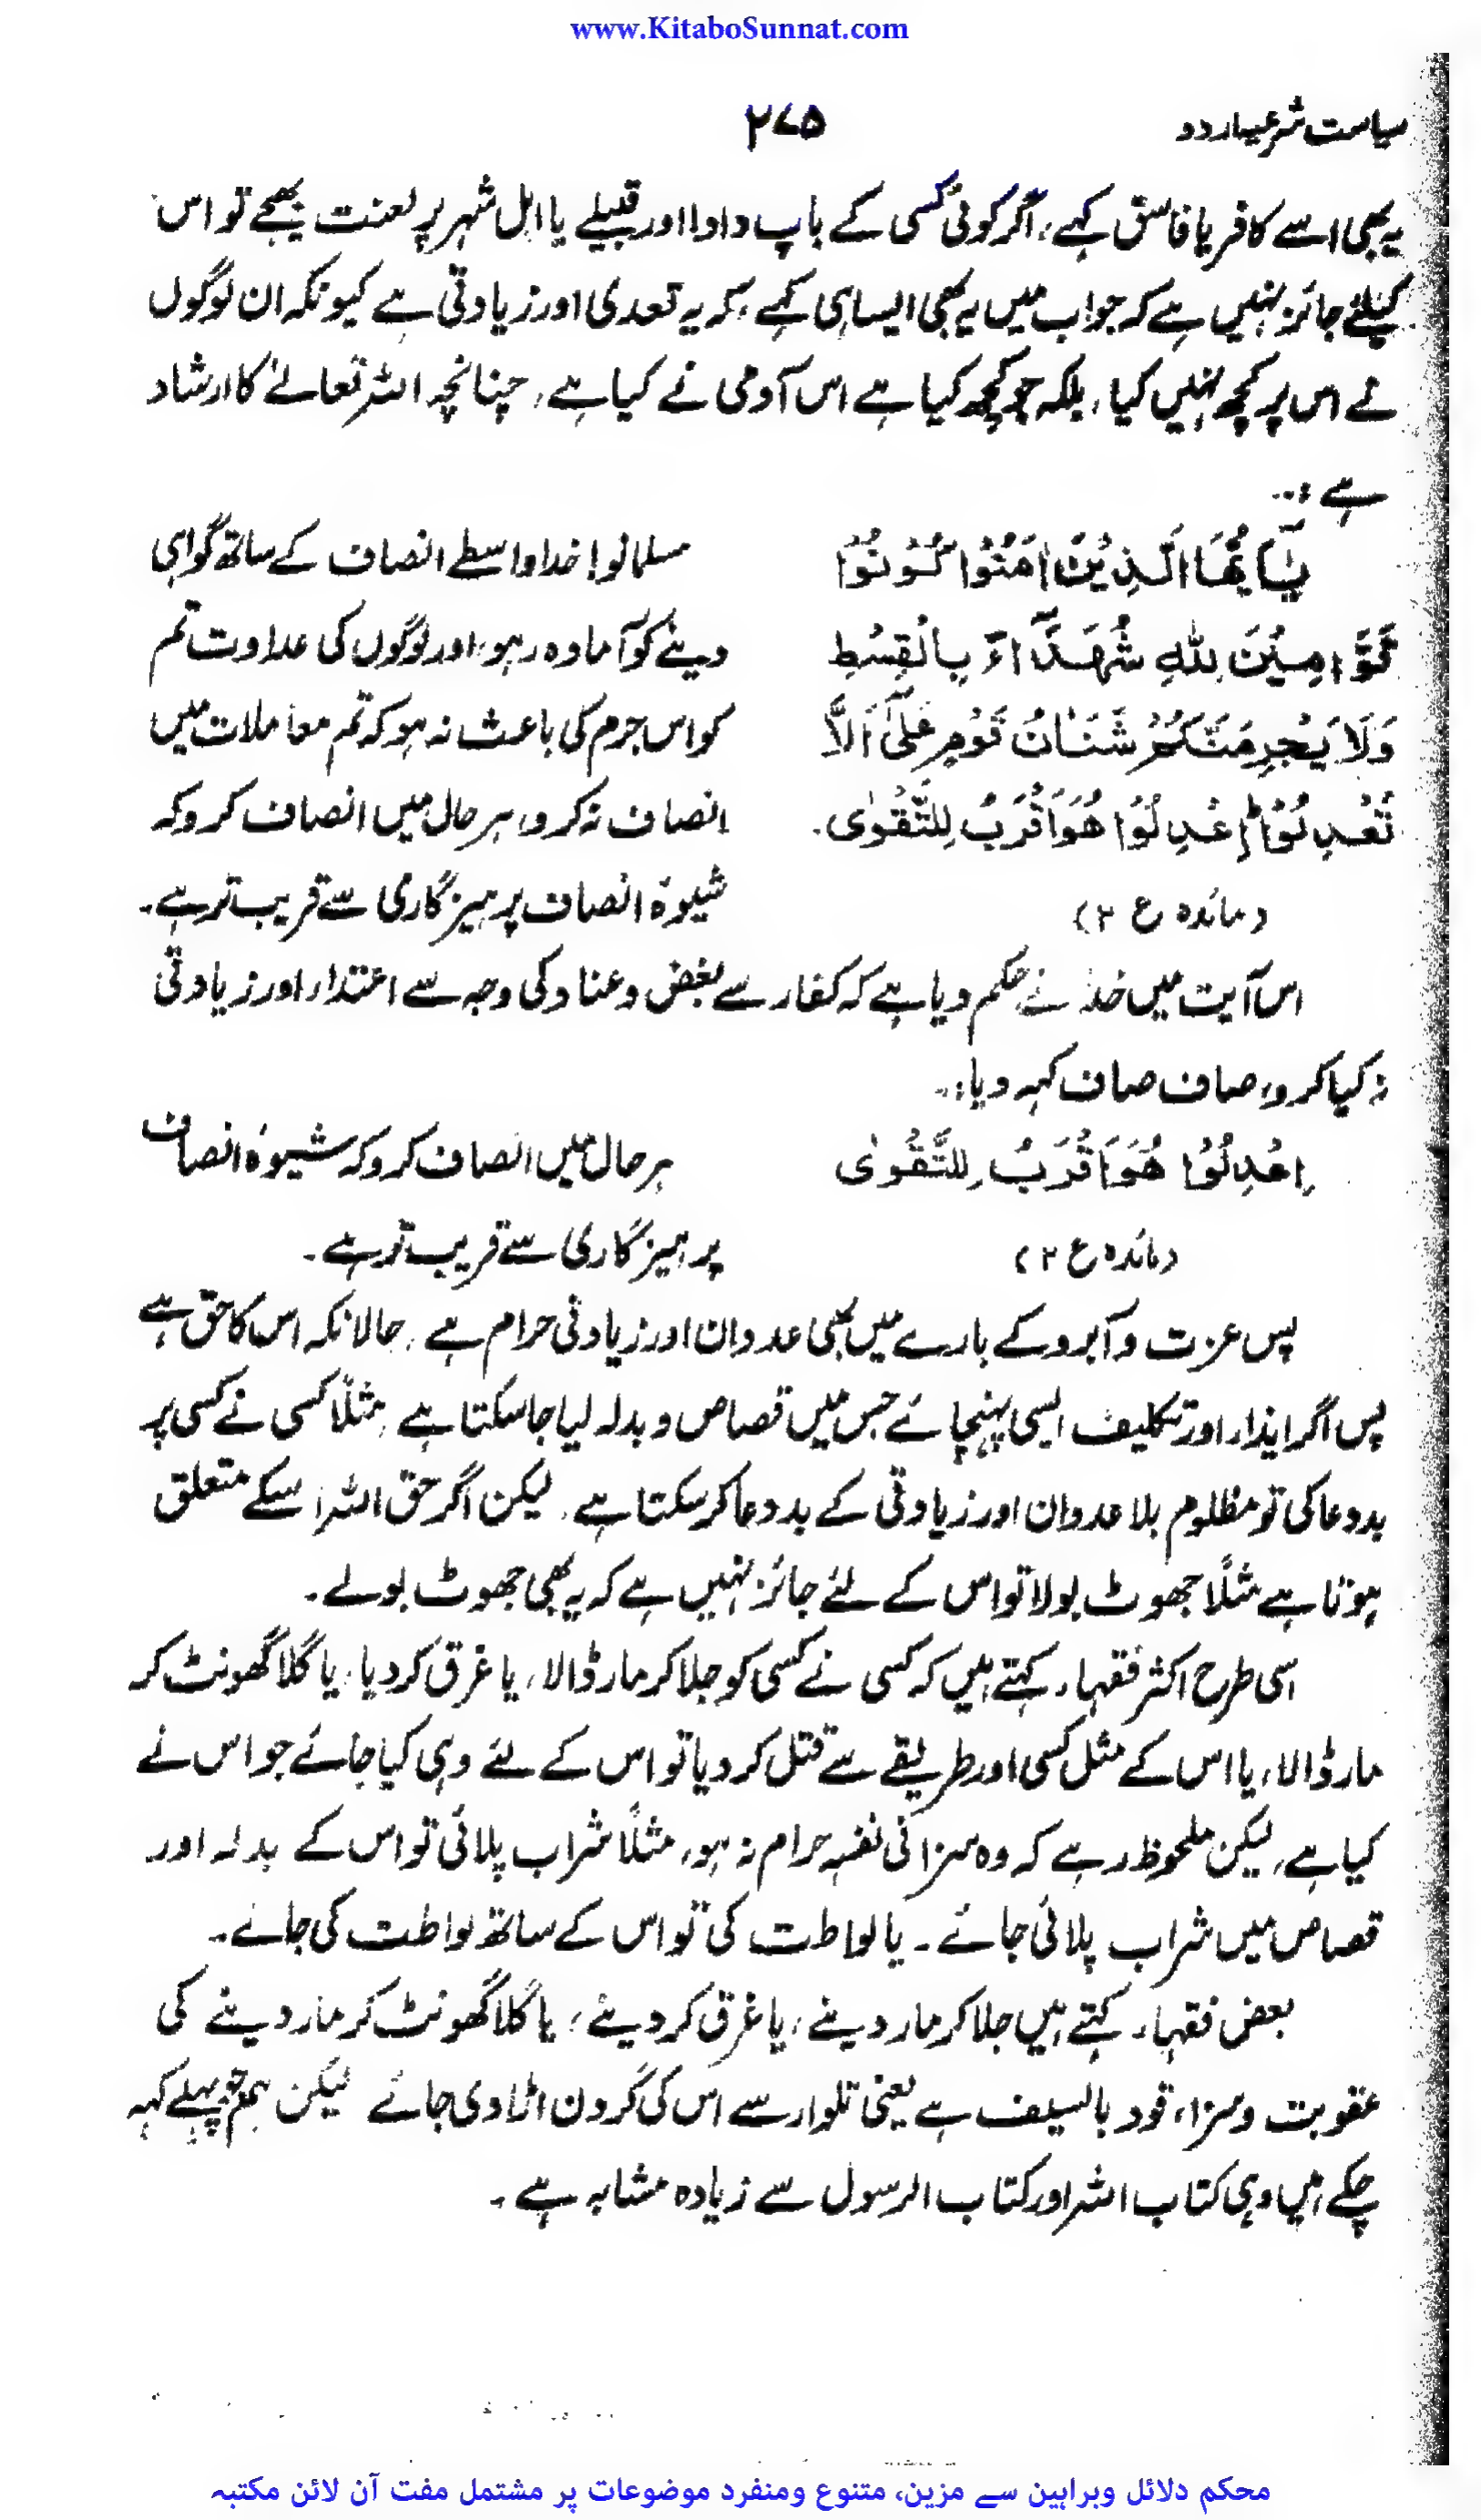 www.KitaboSunnat.com
سیاست شرعیہ اردو
۲۷۵
یہ بھی اسے کافر یا فاسق کہے، اگر کوئی کسی کے باپ دادا اور قبیلے یا اہل شہر پر لعنت بھیجے تو اس
کیلئے جائز نہیں ہے کہ جواب میں یہ بھی ایسا ہی کہے، کہ یہ تعدی اور زیادتی ہے کیونکہ ان لوگوں
نے اس پر کچھ نہیں کیا، بلکہ جو کچھ کیا ہے اس آدمی نے کیا ہے، چنانچہ اللہ تعالےٰ کا ارشاد
ہے :..
یَآ اَیُّھَا الَّذِیْنَ اٰمَنُوْا کُوْنُوْا
قَوَّامِیْنَ لِلّٰہِ شُھَدَآءَ بِالْقِسْطِ
وَلَا یَجْرِمَنَّکُمْ شَنَاٰنُ قَوْمٍ عَلٰٓی اَلَّا
تَعْدِلُوْا ؕ اِعْدِلُوْا ھُوَ اَقْرَبُ لِلتَّقْوٰی.
(مائدہ ع ۲)
مسلمانو! خدا واسطے انصاف کے ساتھ گواہی
دینے کو آمادہ رہو، اور لوگوں کی عداوت تم
کو اس جرم کی باعث نہ ہو کہ تم معاملات میں
انصاف نہ کرو، ہر حال میں انصاف کرو کہ
شیوۂ انصاف پرہیزگاری سے قریب تر ہے۔
اس آیت میں خدا نے حکم دیا ہے کہ کفار سے بغض و عناد کی وجہ سے اعتداء اور زیادتی
نہ کیا کرو، صاف صاف کہہ دیا:..
اِعْدِلُوْا ھُوَ اَقْرَبُ لِلتَّقْوٰی
(مائدہ ع ۲)
ہر حال میں انصاف کرو کہ شیوۂ انصاف
پرہیزگاری سے قریب تر ہے۔
پس عزت و آبرو کے بارے میں بھی عدوان اور زیادتی حرام ہے، حالانکہ اس کا حق ہے
پس اگر ایذاء اور تکلیف ایسی پہنچائے جس میں قصاص و بدلہ لیا جا سکتا ہے، مثلاً کسی نے کسی پر
بددعا کی تو مظلوم بلا عدوان اور زیادتی کے بددعا کر سکتا ہے، لیکن اگر حق اللہ اسکے متعلق
ہوتا ہے مثلاً جھوٹ بولا تو اس کے لئے جائز نہیں ہے کہ یہ بھی جھوٹ بولے۔
اسی طرح اکثر فقہاء کہتے ہیں کہ کسی نے کسی کو جلا کر مار ڈالا، یا غرق کر دیا، یا گلا گھونٹ کر
مار ڈالا، یا اس کے مثل کسی اور طریقے سے قتل کر دیا تو اس کے لئے وہی کیا جائے جو اس نے
کیا ہے، لیکن ملحوظ رہے کہ وہ سزا فی نفسہ حرام نہ ہو، مثلاً شراب پلائی تو اس کے بدلہ اور
قصاص میں شراب پلائی جائے۔ یا لواطت کی تو اس کے ساتھ لواطت کی جائے۔
بعض فقہاء کہتے ہیں جلا کر مار دینے، یا غرق کر دینے، یا گلا گھونٹ کر مار دینے کی
عقوبت و سزا، قود بالسیف ہے یعنی تلوار سے اس کی گردن اڑا دی جائے لیکن ہم جو پہلے کہہ
چکے ہیں وہی کتاب اللہ اور کتاب الرسول سے زیادہ مشابہ ہے۔
محکم دلائل وبراہین سے مزین، متنوع ومنفرد موضوعات پر مشتمل مفت آن لائن مکتبہ